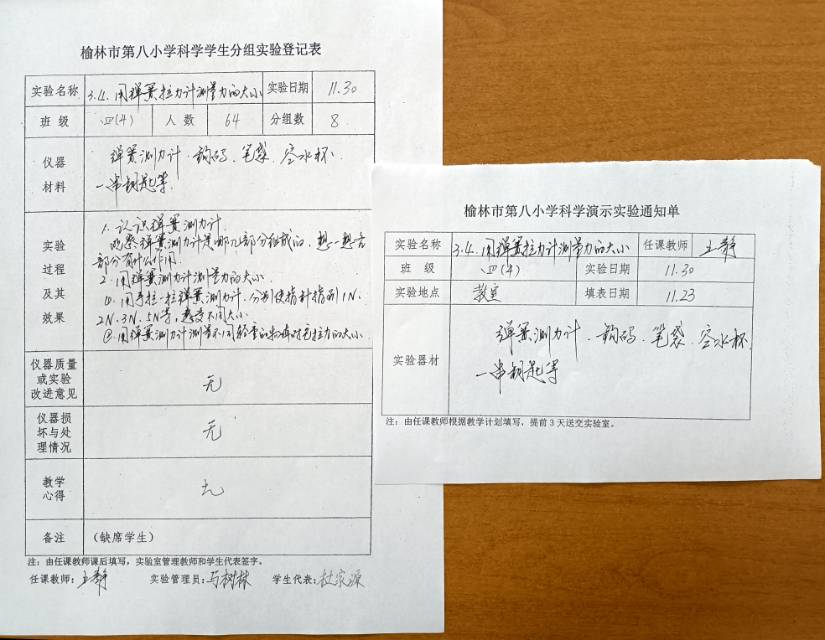 榆林市第八小学科学学生分组实验登记表
实验名称 3.4.用弹簧拉力计测量力的大小 实验日期 11.30
班 级 四(4) 人 数 64 分组数 8
仪器 材料 弹簧测力计、钩码、笔袋、空水杯、
一串钥匙等
实验 过程 及其 效果 1.认识弹簧测力计.
观察弹簧测力计是由哪几部分组成的,想一想各
部分有什么作用
2.用弹簧测力计测量力的大小
①用手拉一拉弹簧测力计.分别使指针指到1N.
2N.3N.5N等,感受不同大小
②用弹簧测力计测量不同轻重的物体时它拉力的大小
仪器质量 或实验 改进意见 无
仪器损 坏与处 理情况 无
教学 心得 无
备注 (缺席学生)
注:由任课教师课后填写,实验室管理教师和学生代表签字。
任课教师:王静 实验管理员:马树林 学生代表:杜家源
榆林市第八小学科学演示实验通知单
实验名称 3.4.用弹簧拉力计测量力的大小 任课教师 王静
班 级 四(4) 实验日期 11.30
实验地点 教室 填表日期 11.23
实验器材 弹簧测力计、钩码、笔袋、空水杯
一串钥匙等
注:由任课教师根据教学计划填写,提前3天送交实验室。